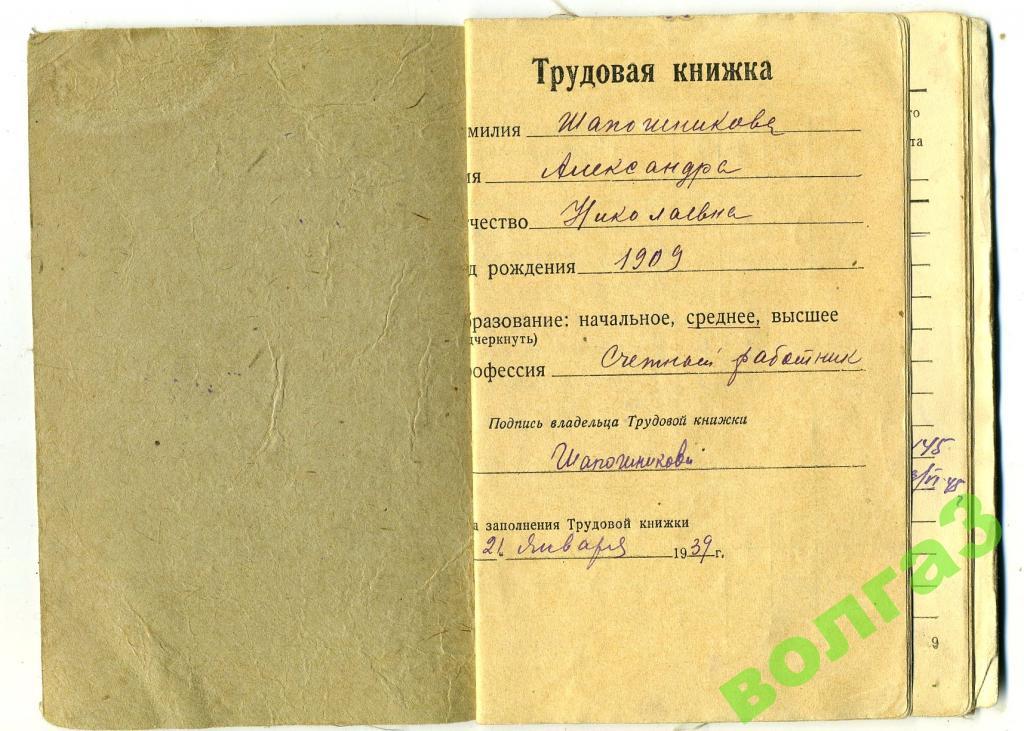 Трудовая книжка
милия Шапошникова
ия Александра
чество Николаевна
д рождения 1909
бразование: начальное, среднее, высшее
дчеркнуть)
рофессия Счетный работник
Подпись владельца Трудовой книжки
Шапошникова
а заполнения Трудовой книжки
21 января 1939 г.
го
та
9
волга3